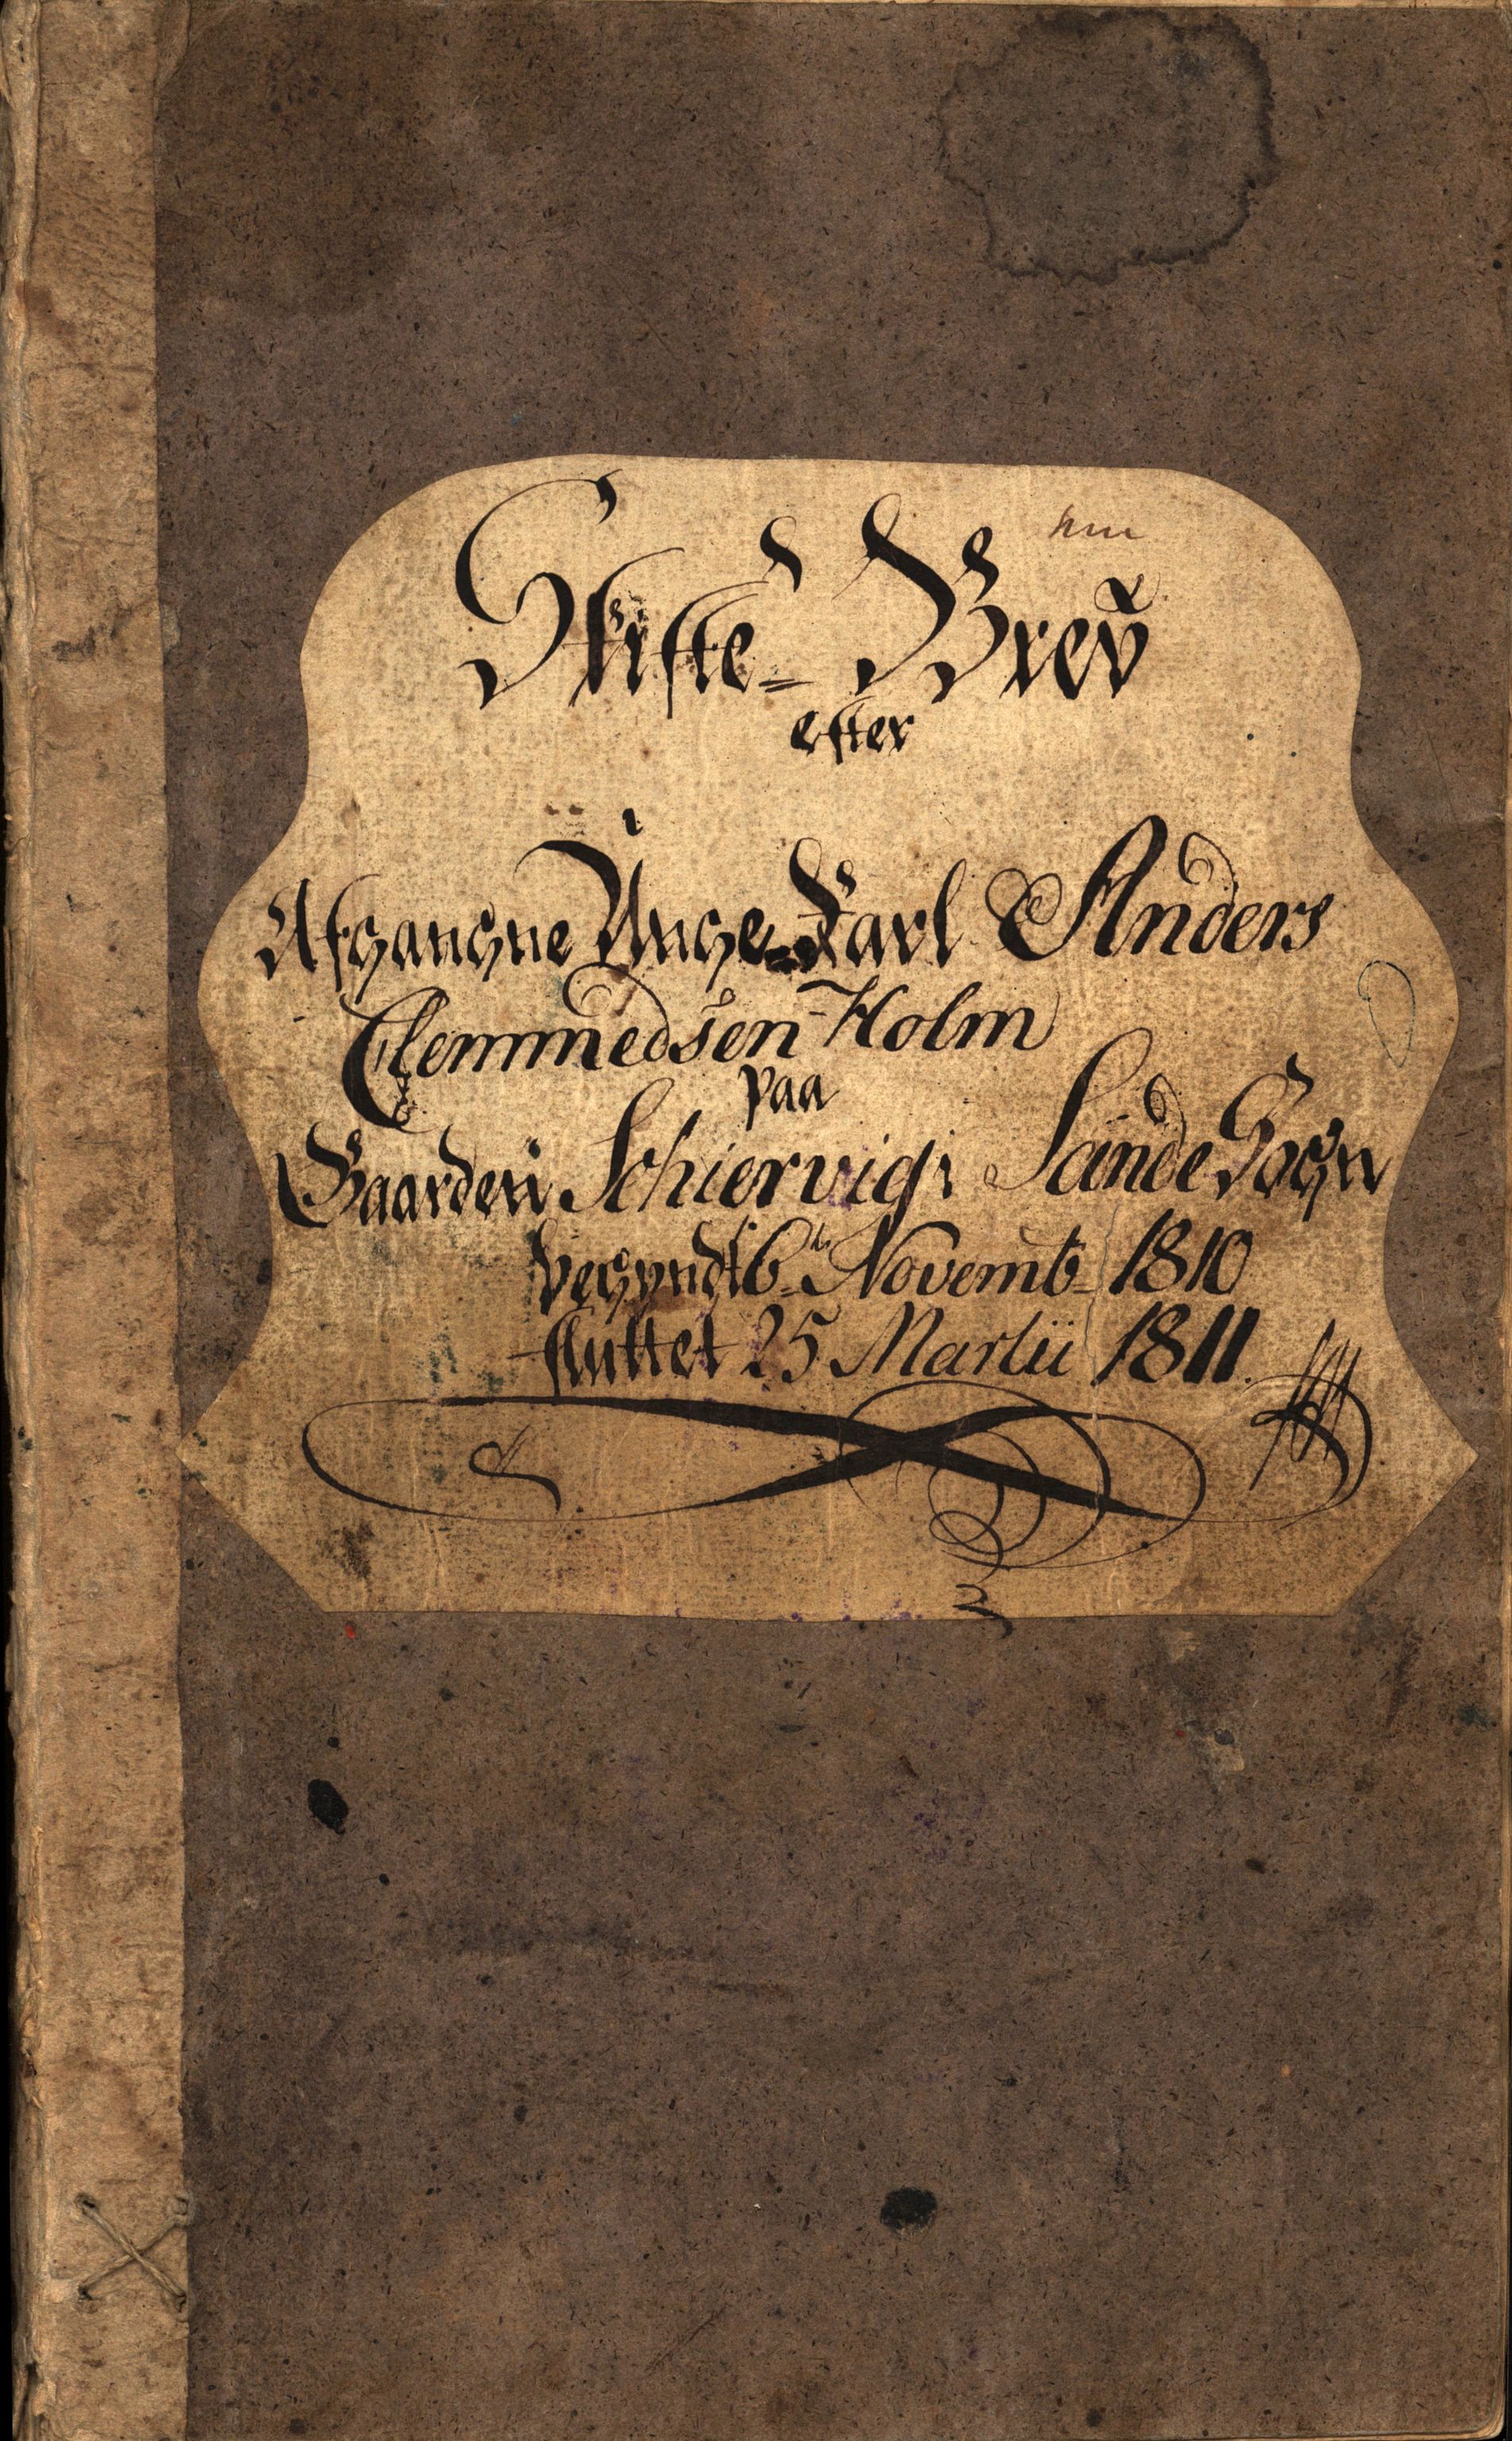 Skifte= Brev
efter
Afgangne Unge=Karl Anders
Clemmedsen Holm
paa
Gaarden Schiervig i Sande Sogn
begyndt 6te Novemb 1810
sluttet 25 Martii 1811.